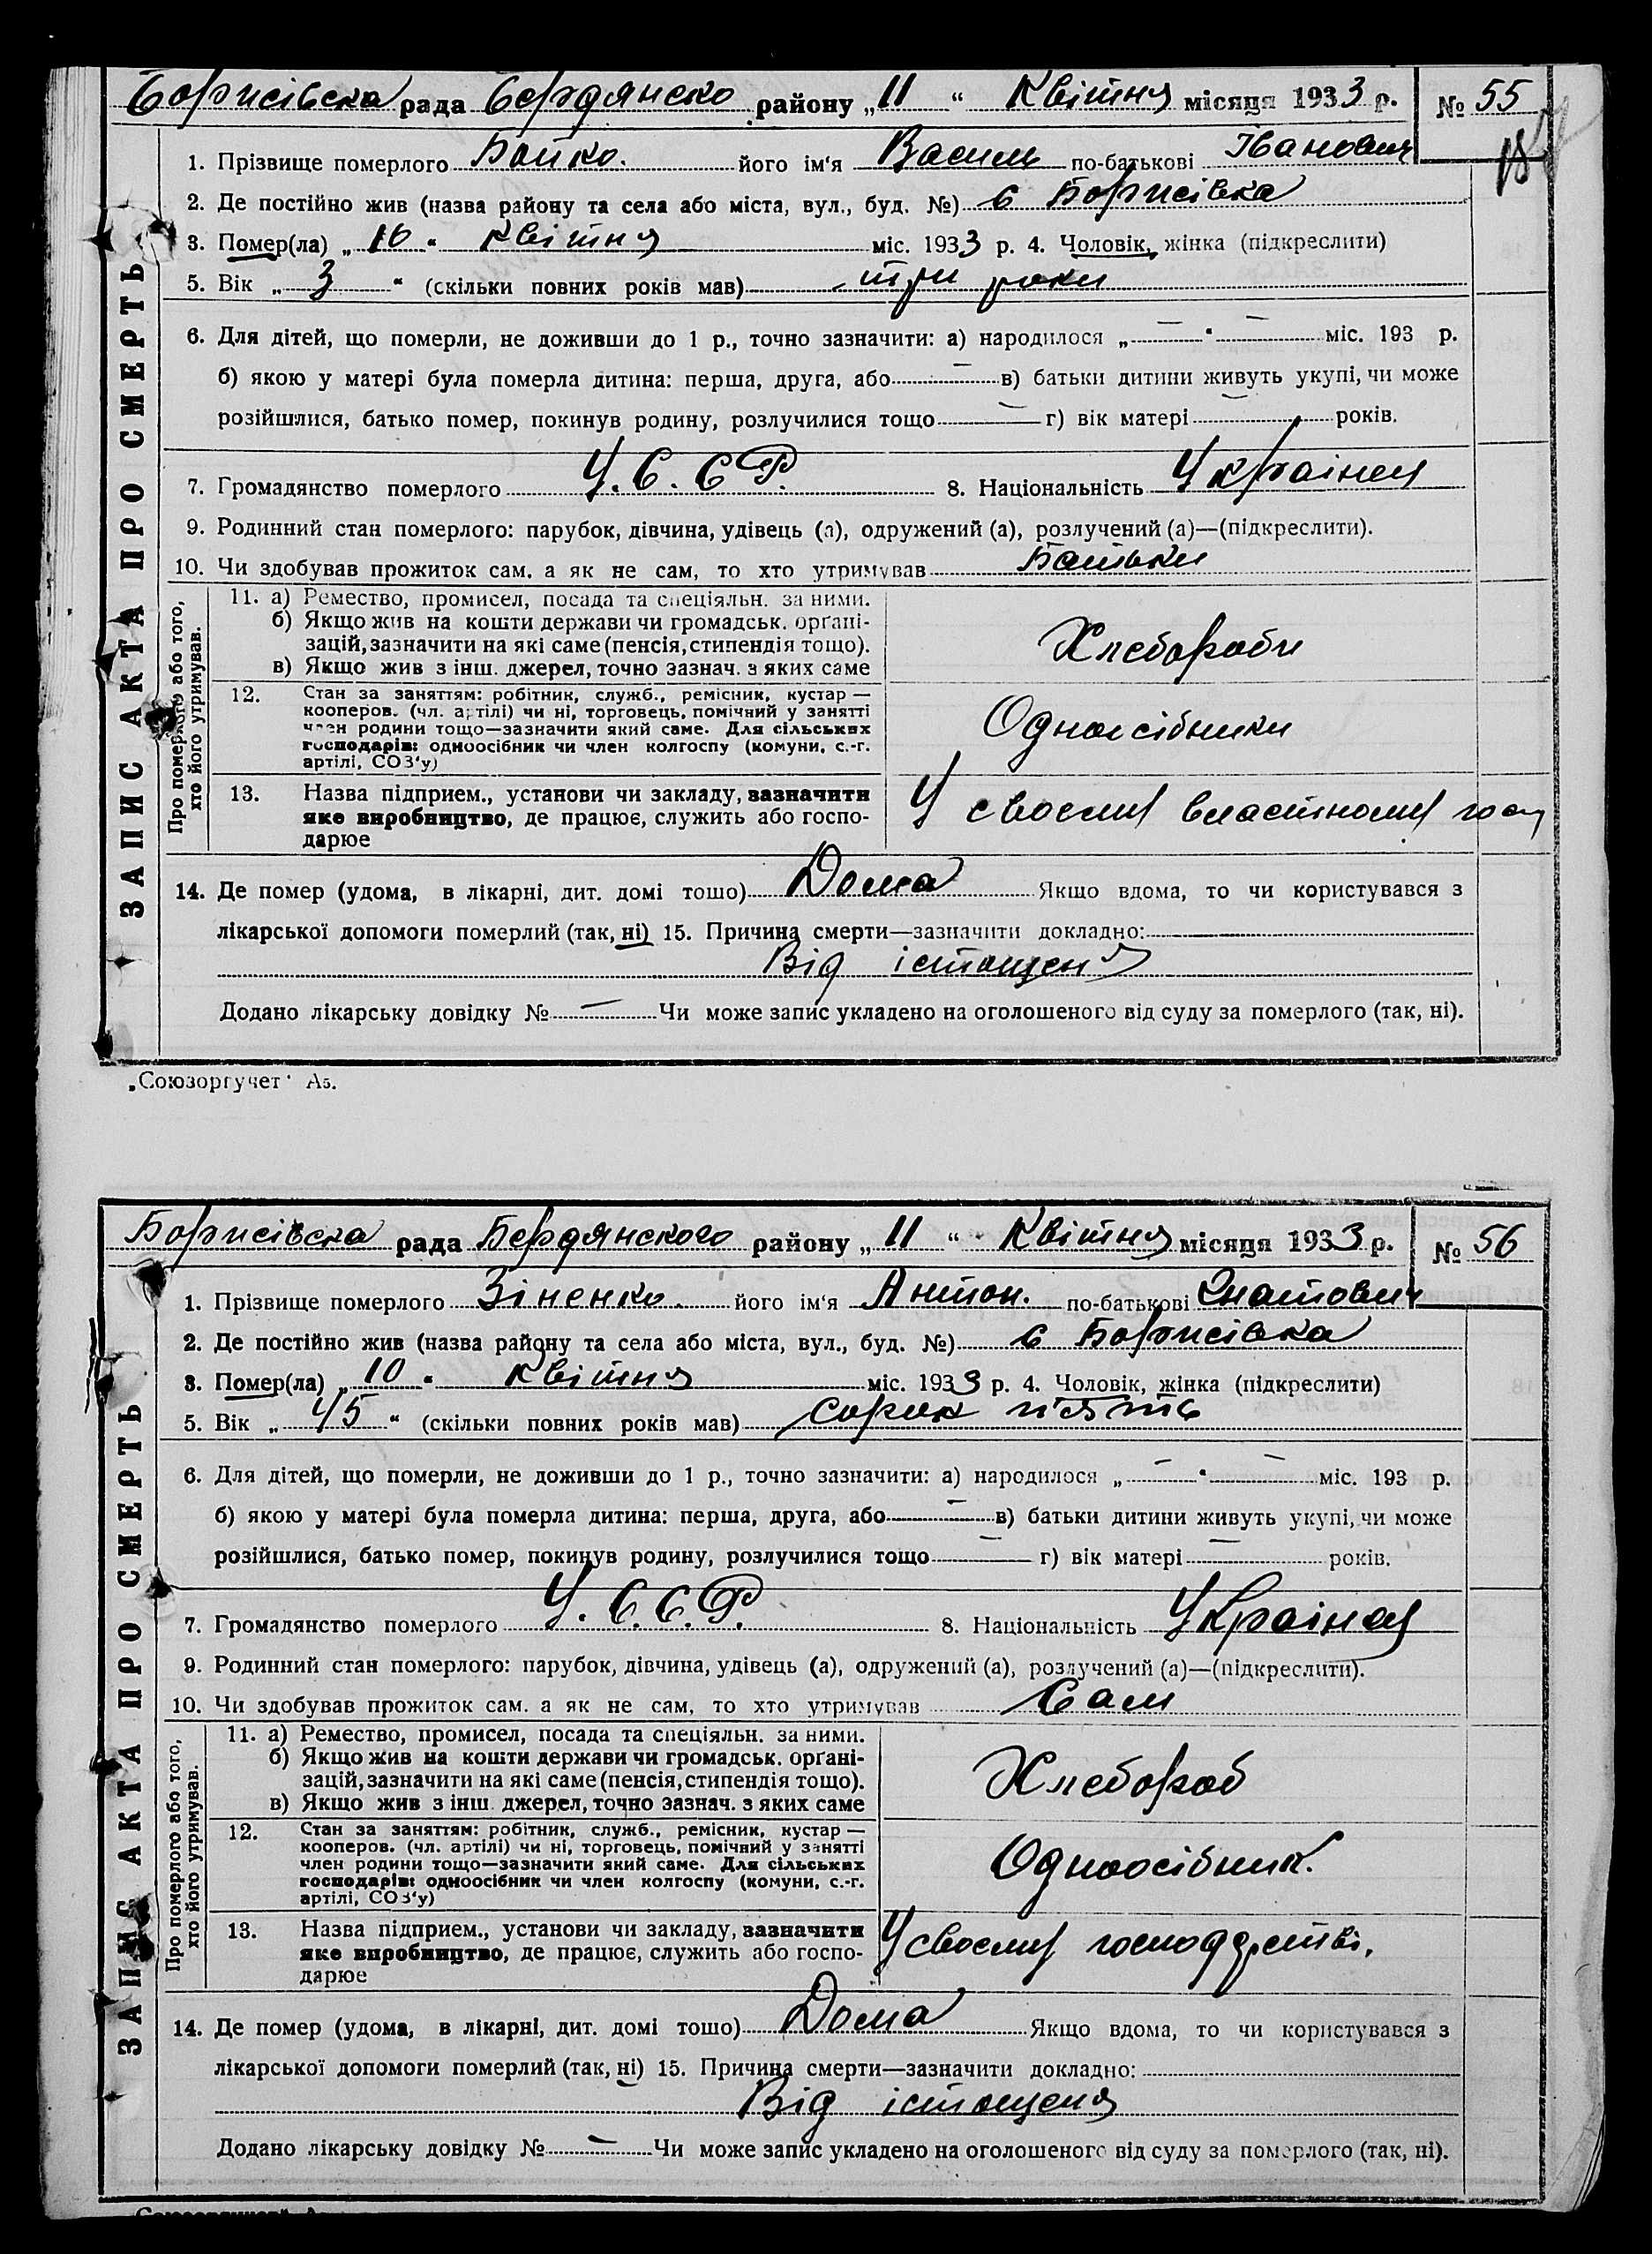 Борисівска рада Бердянско району „ 11 “ Квітня місяця 1933 р. № 55
1. Прізвище померлого Бойко. його ім'я Василь по-батькові Іванович
2. Де постійно жив (назва району та села або міста, вул., буд. №) с Борисівка
3. Помер(ла) „ 10 “ Квітня міс. 1933 р. 4. Чоловік, жінка (підкреслити)
5. Вік „ 3 “ (скільки повних років мав) три роки
6. Для дітей, що померли, не доживши до 1 р., точно зазначити: а) народилося „ — “ — міс. 193 р.
б) якою у матері була померла дитина: перша, друга, або — в) батьки дитини живуть укупі, чи може
розійшлися, батько помер, покинув родину, розлучилися тощо — г) вік матері — років.
7. Громадянство померлого У.С.С.Р. 8. Національність Українец
9. Родинний стан померлого: парубок, дівчина, удівець (а), одружений (а), розлучений (а)—(підкреслити).
10. Чи здобував прожиток сам. а як не сам, то хто утримував Батьки
ЗАПИС АКТА ПРО СМЕРТЬ
Про померлого або того,
хто його утримував.
11. а) Ремество, промисел, посада та спеціяльн. за ними.
б) Якщо жив на кошти держави чи громадськ. орґані-
зацій, зазначити на які саме (пенсія, стипендія тощо).
в) Якщо жив з інш. джерел, точно зазнач. з яких саме
Хлебороби
12. Стан за заняттям: робітник, служб., ремісник, кустар —
кооперов. (чл. артілі) чи ні, торговець, помічний у занятті
член родини тощо—зазначити який саме. Для сільських
господарів: одноосібник чи член колгоспу (комуни, с.-г.
артілі, СОЗ'у)
Одноосібники
13. Назва підприєм., установи чи закладу, зазначити
яке виробництво, де працює, служить або госпо-
дарює
У своему властному госп
14. Де помер (удома, в лікарні, дит. домі тошо) Дома Якщо вдома, то чи користувався з
лікарської допомоги померлий (так, ні) 15. Причина смерти—зазначити докладно:
Від істощеня
Додано лікарську довідку № — Чи може запис укладено на оголошеного від суду за померлого (так, ні).
„Союзоргучет“ Аз.
Борисівска рада Бердянского району „ 11 “ Квітня місяця 1933 р. № 56
1. Прізвище померлого Зіненко. його ім'я Антон. по-батькові Гнатович
2. Де постійно жив (назва району та села або міста, вул., буд. №) с Борисівка
3. Помер(ла) „ 10 “ Квітня міс. 1933 р. 4. Чоловік, жінка (підкреслити)
5. Вік „ 45 “ (скільки повних років мав) сорок пʼять
6. Для дітей, що померли, не доживши до 1 р., точно зазначити: а) народилося „ — “ — міс. 193 р.
б) якою у матері була померла дитина: перша, друга, або — в) батьки дитини живуть укупі, чи може
розійшлися, батько помер, покинув родину, розлучилися тощо — г) вік матері — років.
7. Громадянство померлого У.С.С.Р. 8. Національність Українец
9. Родинний стан померлого: парубок, дівчина, удівець (а), одружений (а), розлучений (а)—(підкреслити).
10. Чи здобував прожиток сам. а як не сам, то хто утримував Сам
ЗАПИС АКТА ПРО СМЕРТЬ
Про померлого або того,
хто його утримував.
11. а) Ремество, промисел, посада та спеціяльн. за ними.
б) Якщо жив на кошти держави чи громадськ. орґані-
зацій, зазначити на які саме (пенсія, стипендія тощо).
в) Якщо жив з інш. джерел, точно зазнач. з яких саме
Хлебороб
12. Стан за заняттям: робітник, служб., ремісник, кустар —
кооперов. (чл. артілі) чи ні, торговець, помічний у занятті
член родини тощо—зазначити який саме. Для сільських
господарів: одноосібник чи член колгоспу (комуни, с.-г.
артілі, СОЗ'у)
Одноосібник.
13. Назва підприєм., установи чи закладу, зазначити
яке виробництво, де працює, служить або госпо-
дарює
У своему господрстві.
14. Де помер (удома, в лікарні, дит. домі тошо) Дома Якщо вдома, то чи користувався з
лікарської допомоги померлий (так, ні) 15. Причина смерти—зазначити докладно:
Від істощеня
Додано лікарську довідку № — Чи може запис укладено на оголошеного від суду за померлого (так, ні).